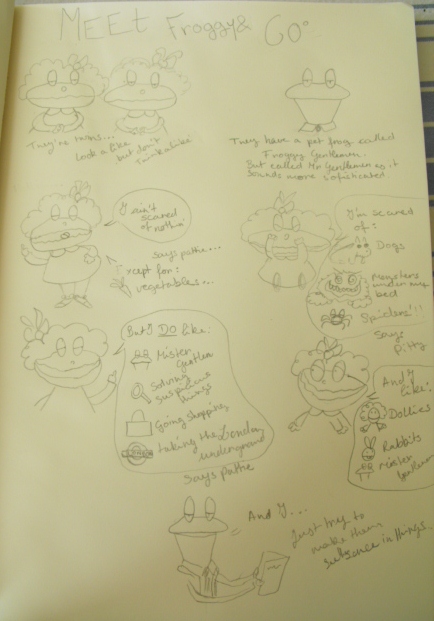 MEET Froggy & CO°
They're twins...
look a like
but don't
They have a pet frog called
Froggy Gentlemen.
But called Mr Gentlemen as it
sounds more sofisticated
I ain't
scared
of nothin'
says pathe...
Except for:
vegetables...
I'm scared
of:
Dogs
Monsters
under my
bed
Spiders!!
Says
Pitty
But I DO like:
Mister
Gentlem
Solving
suspicious
things
Going shopping
taking the London
underground
Says Pathe
And I
like:
Dollies
Rabbits
Mister
And I...
Just try to
make them
in things.